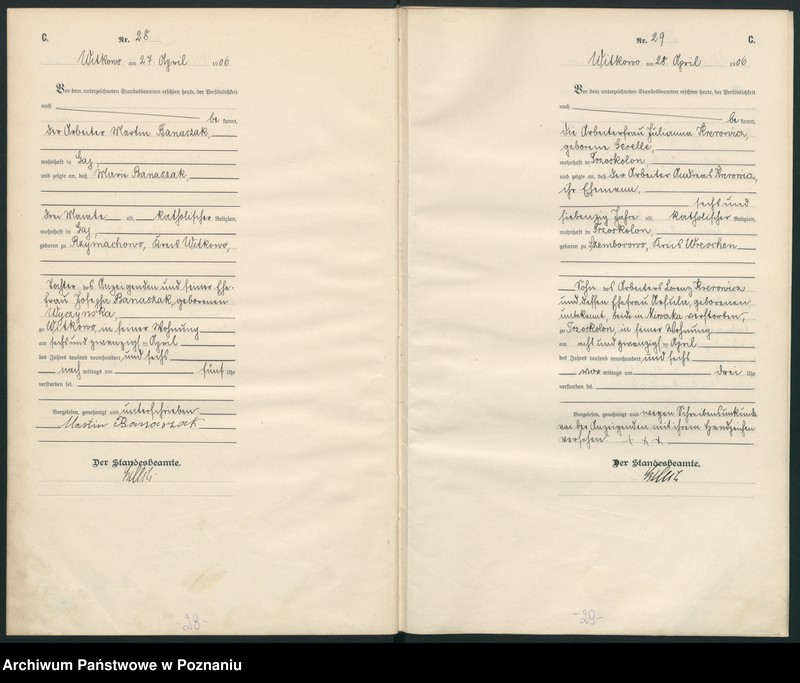 C.
Nr. 28
Witkowo am 27. April 1906
Vor dem unterzeichneten Standesbeamten erschien heute, der Persönlichkeit
nach
be kannt,
der Arbeiter Martin Banaszak,
wohnhaft in Gaj,
und zeigte an, daß Marie Banaszak,
drei Monate alt, katholischer Religion,
wohnhaft in Gaj,
geboren zu Kreis Witkowo,
Tochter des Anzeigenden und seiner Ehe-
frau Josepha Banaszak, geborenen
zu Witkowo, in seiner Wohnung
am sechs und zwanzigsten April
des Jahres tausend neunhundert und sechs
nach mittags um fünf Uhr
verstorben sei.
Vorgelesen, genehmigt und unterschrieben
Martin Banaszak
Der Standesbeamte.
28
C.
Nr. 29
Witkowo am 28. April 1906
Vor dem unterzeichneten Standesbeamten erschien heute, der Persönlichkeit
nach
be kannt,
die Arbeiterfrau Julianna
geborene
wohnhaft in
und zeigte an, daß der Arbeiter Andreas
ihr Ehemann,
sechs und
siebenzig Jahre alt, katholischer Religion,
wohnhaft in
geboren zu Szemborowo, Kreis Wreschen
Sohn des Arbeiters Lorenz
und dessen Ehefrau geborenen
unbekannt, beide in verstorben,
zu in seiner Wohnung
am acht und zwanzigsten April
des Jahres tausend neunhundert und sechs
vor mittags um drei Uhr
verstorben sei.
Vorgelesen, genehmigt und wegen Schreibensunkunde
von der Anzeigenden mit ihrem Handzeichen
versehen. + + +
Der Standesbeamte.
-29-
Archiwum Państwowe w Poznaniu